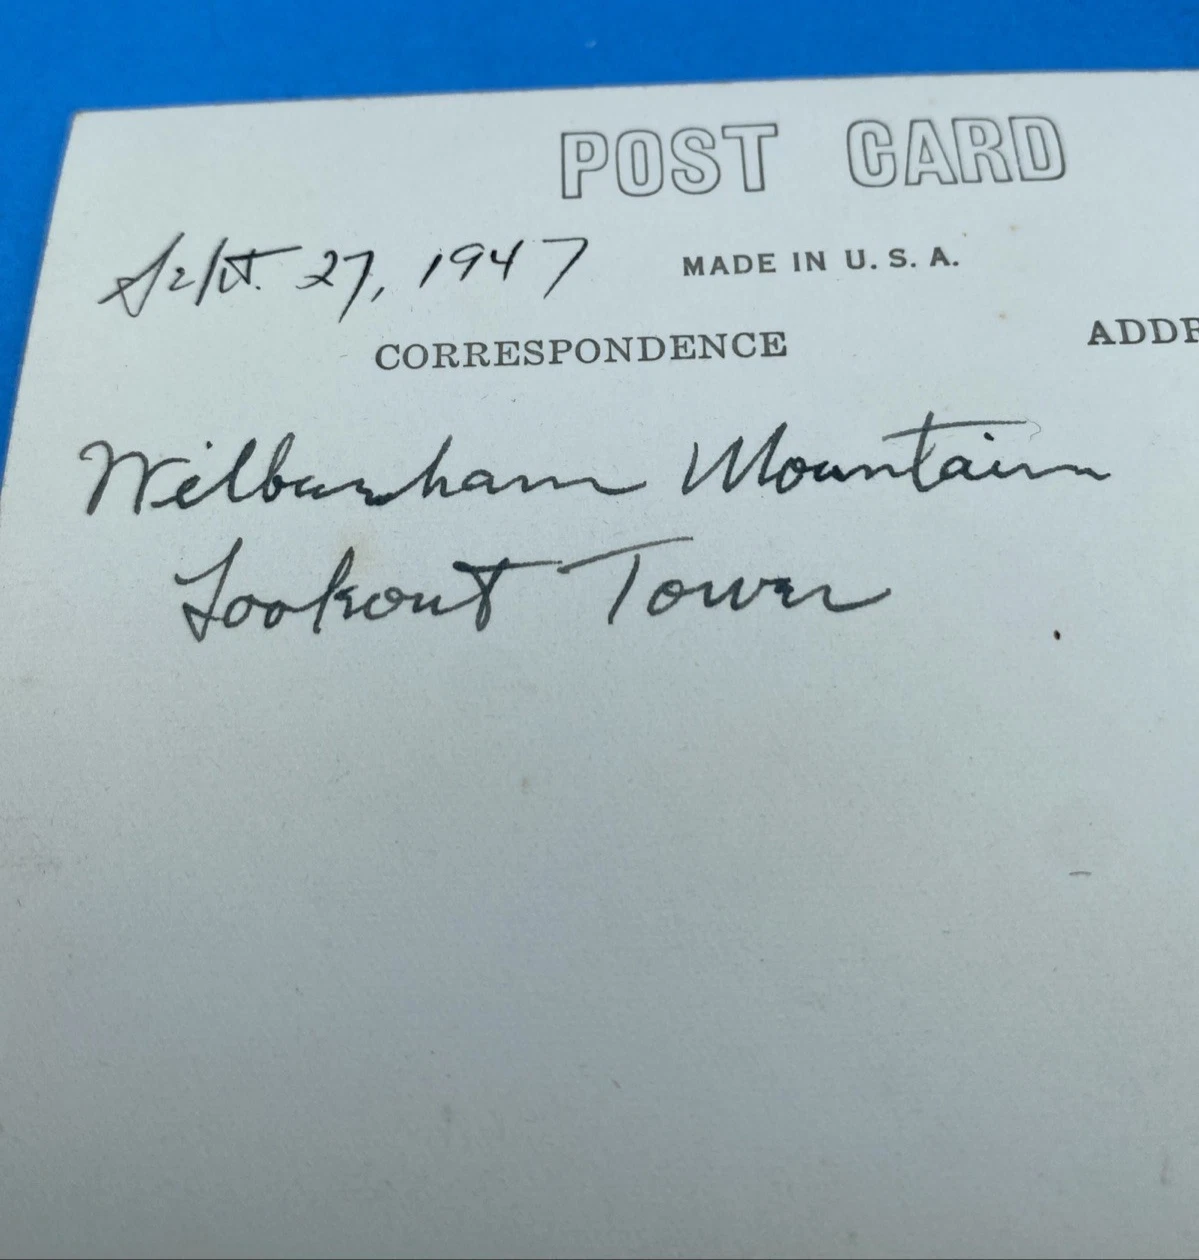 POST CARD
Sept. 27, 1947
MADE IN U. S. A.
CORRESPONDENCE
ADDR
Wilbraham Mountain
Lookout Tower